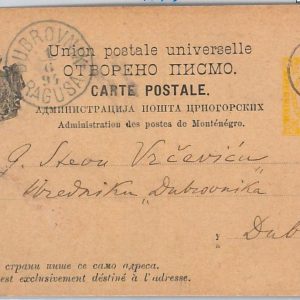 DUBROVNIK
RAGUSA
Union postale universelle
ОТВОРЕНО ПИСМО.
CARTE POSTALE.
АДМИНИСТРАЦИЈА ПОШТА ЦРНОГОРСКИХ
Administration des postes de Monténégro.
G. Stevu Vrčeviću
Uredniku „Dubrovnika"
У
à
Dub
страни пише се само адреса.
est exclusivement déstiné à l'adresse.